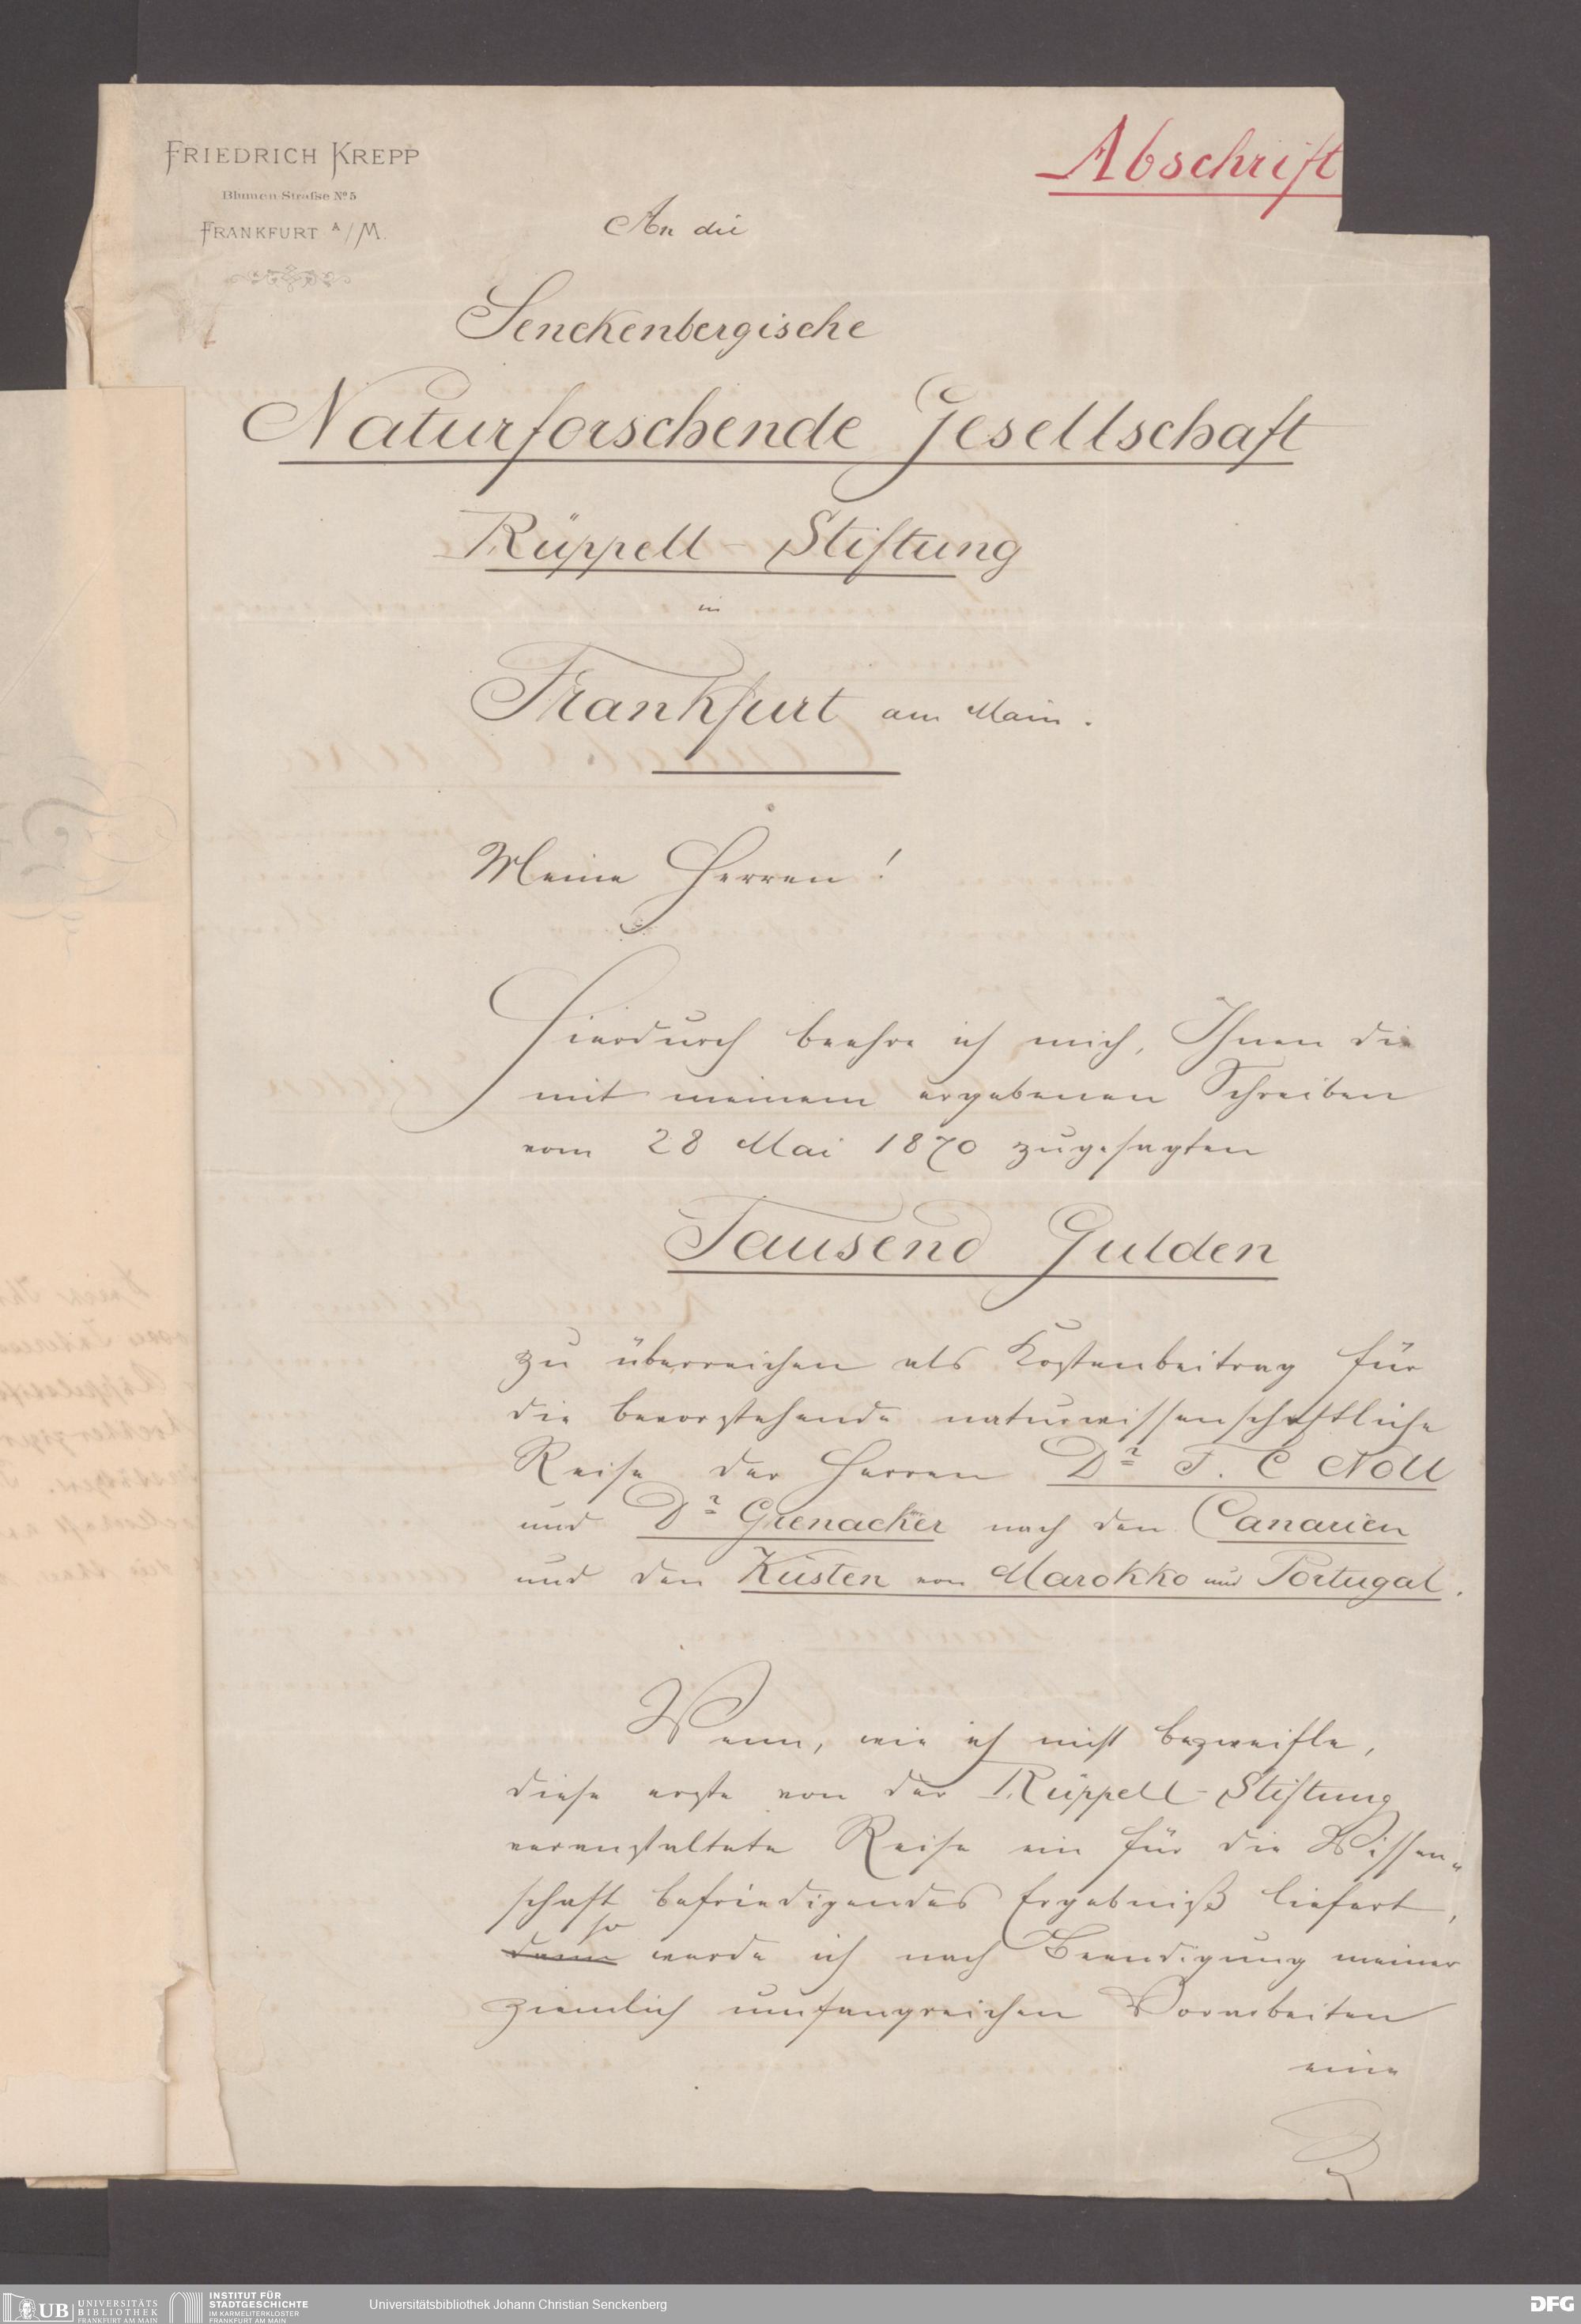 FRIEDRICH KREPP
Blumen-Straße No 5
FRANKFURT A/M.
Abschrift
An die
Senckenbergische
Naturforschende Gesellschaft
Rüppell-Stiftung
in
Frankfurt am Main.
Meine Herren!
Hierdurch beehre ich mich, Ihnen die
mit meinem ergebenen Schreiben
vom 28 Mai 1870 zugesagten
Tausend Gulden
zu überreichen als Kostenbeitrag für
die bevorstehende naturwissenschaftliche
Reise der Herren Dr F. C Noll
und Dr Grenacher nach den Canarien
und den Küsten von Marokko und Portugal.
Wenn, wie ich nicht bezweifle,
diese erste von der Rüppell-Stiftung
veranstaltete Reise ein für die Wissen-
schaft befriedigendes Ergebniß liefert,
so
dann werde ich nach Beendigung meiner
ziemlich umfangreichen Vorarbeiten
eine
UB UNIVERSITÄTS
BIBLIOTHEK
FRANKFURT AM MAIN
INSTITUT FÜR
STADTGESCHICHTE
IM KARMELITERKLOSTER
FRANKFURT AM MAIN
Universitätsbibliothek Johann Christian Senckenberg
DFG